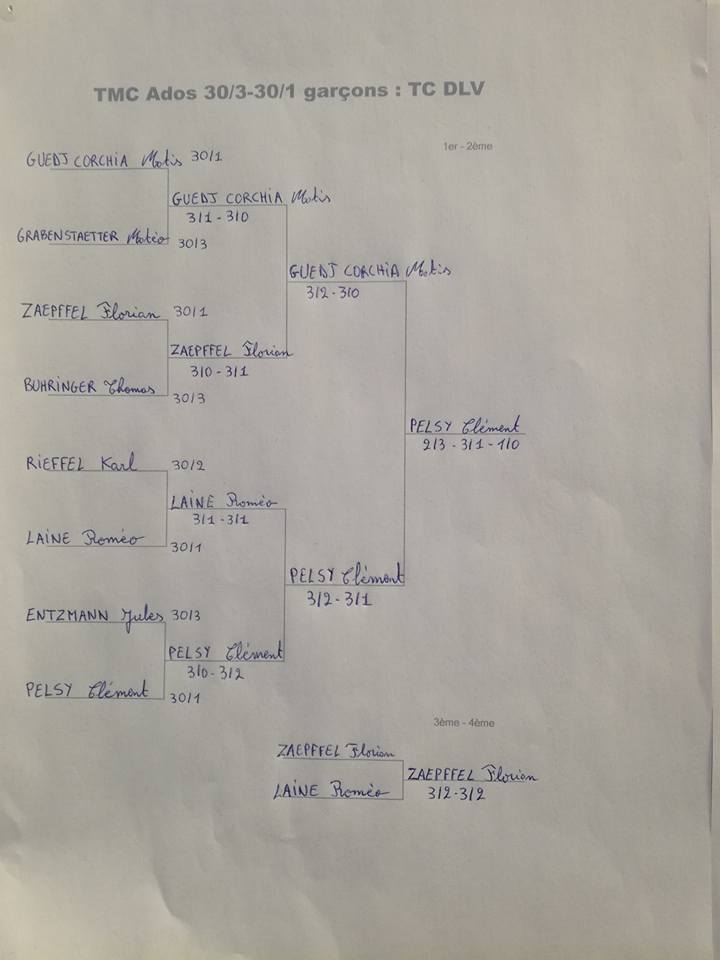 TMC Ados 30/3-30/1 garçons : TC DLV
1er - 2ème
GUEDJ CORCHIA Matis 30/1
GUEDJ CORCHIA Matis
3/1 - 3/0
GRABENSTAETTER Matéo 30/3
GUEDJ CORCHIA Matis
3/2 - 3/0
ZAEPFFEL Florian 30/1
ZAEPFFEL Florian
3/0 - 3/1
BUHRINGER Thomas 30/3
PELSY Clément
2/3 - 3/1 - 1/0
RIEFFEL Karl 30/2
LAINE Roméo
3/1 - 3/1
LAINE Roméo 30/1
PELSY Clément
3/2 - 3/1
ENTZMANN Jules 30/3
PELSY Clément
3/0 - 3/2
PELSY Clément 30/1
3ème - 4ème
ZAEPFFEL Florian
ZAEPFFEL Florian
3/2 - 3/2
LAINE Roméo